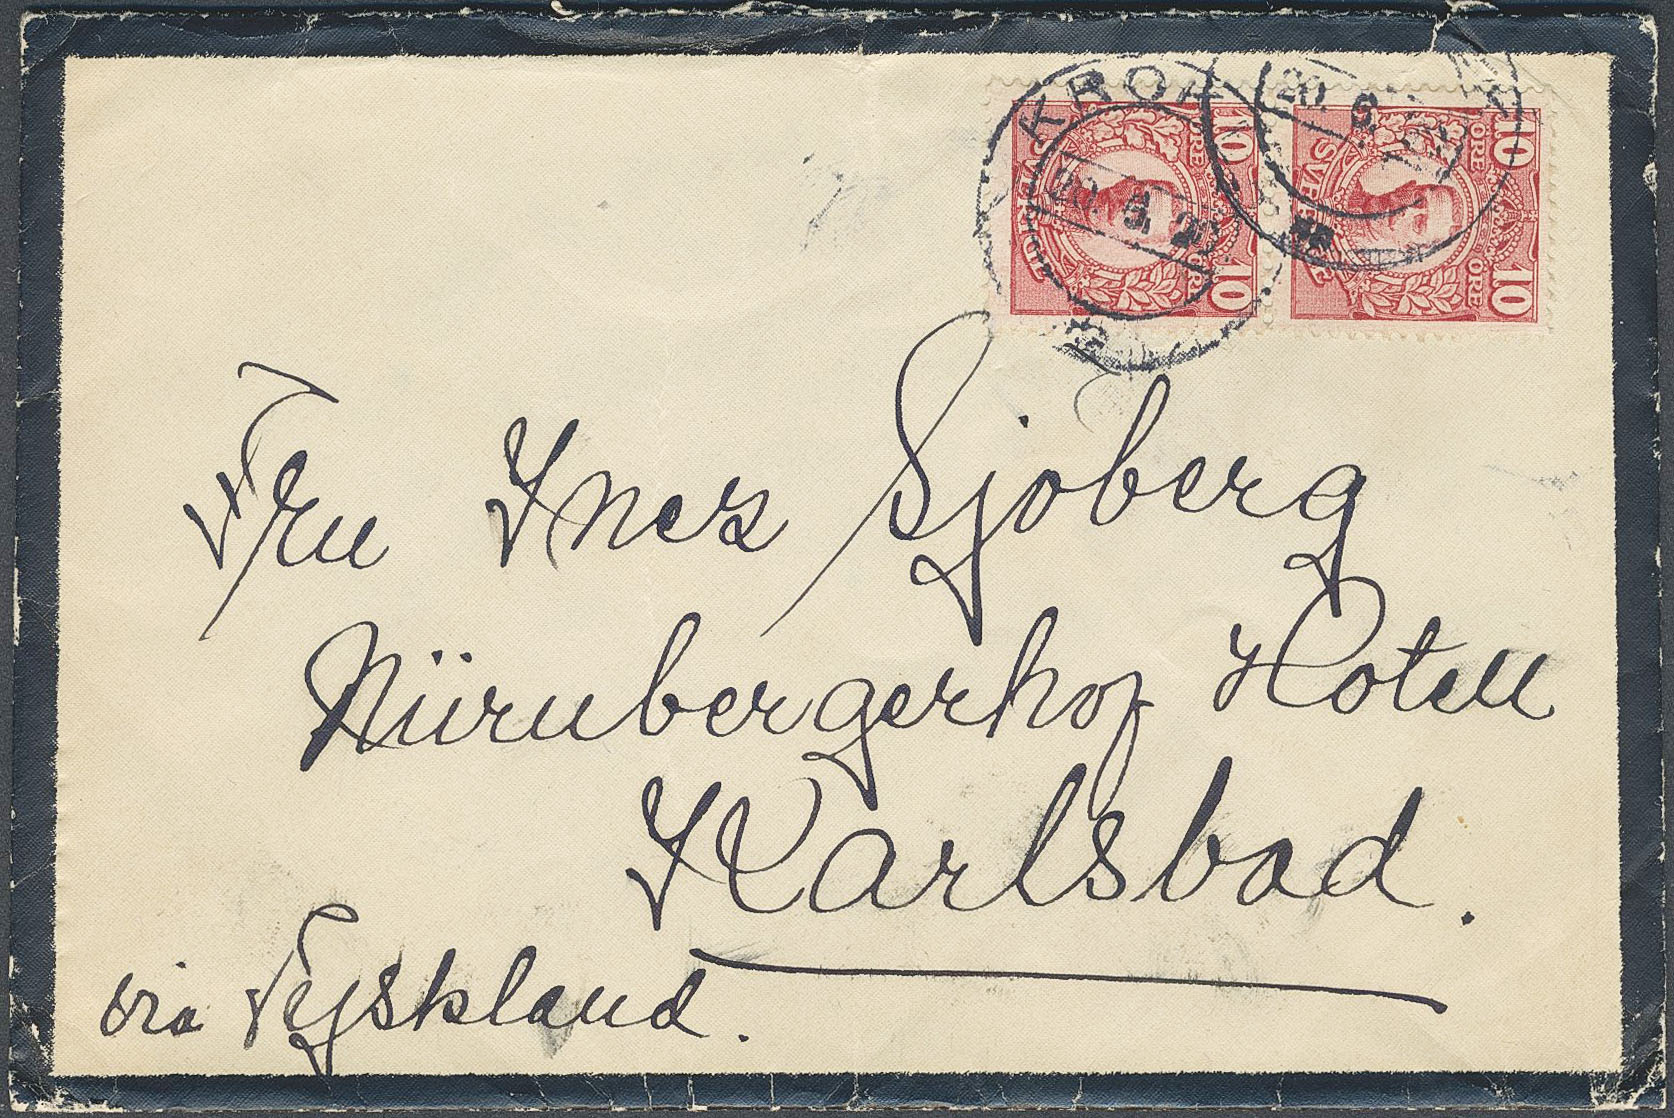 10 ÖRE SVERIGE ÖRE 10
10 ÖRE SVERIGE ÖRE 10
20. 6.
20. 6.
Fru Ines Sjöberg
Nürnbergerhof Hotell
Karlsbad.
via Tyskland.